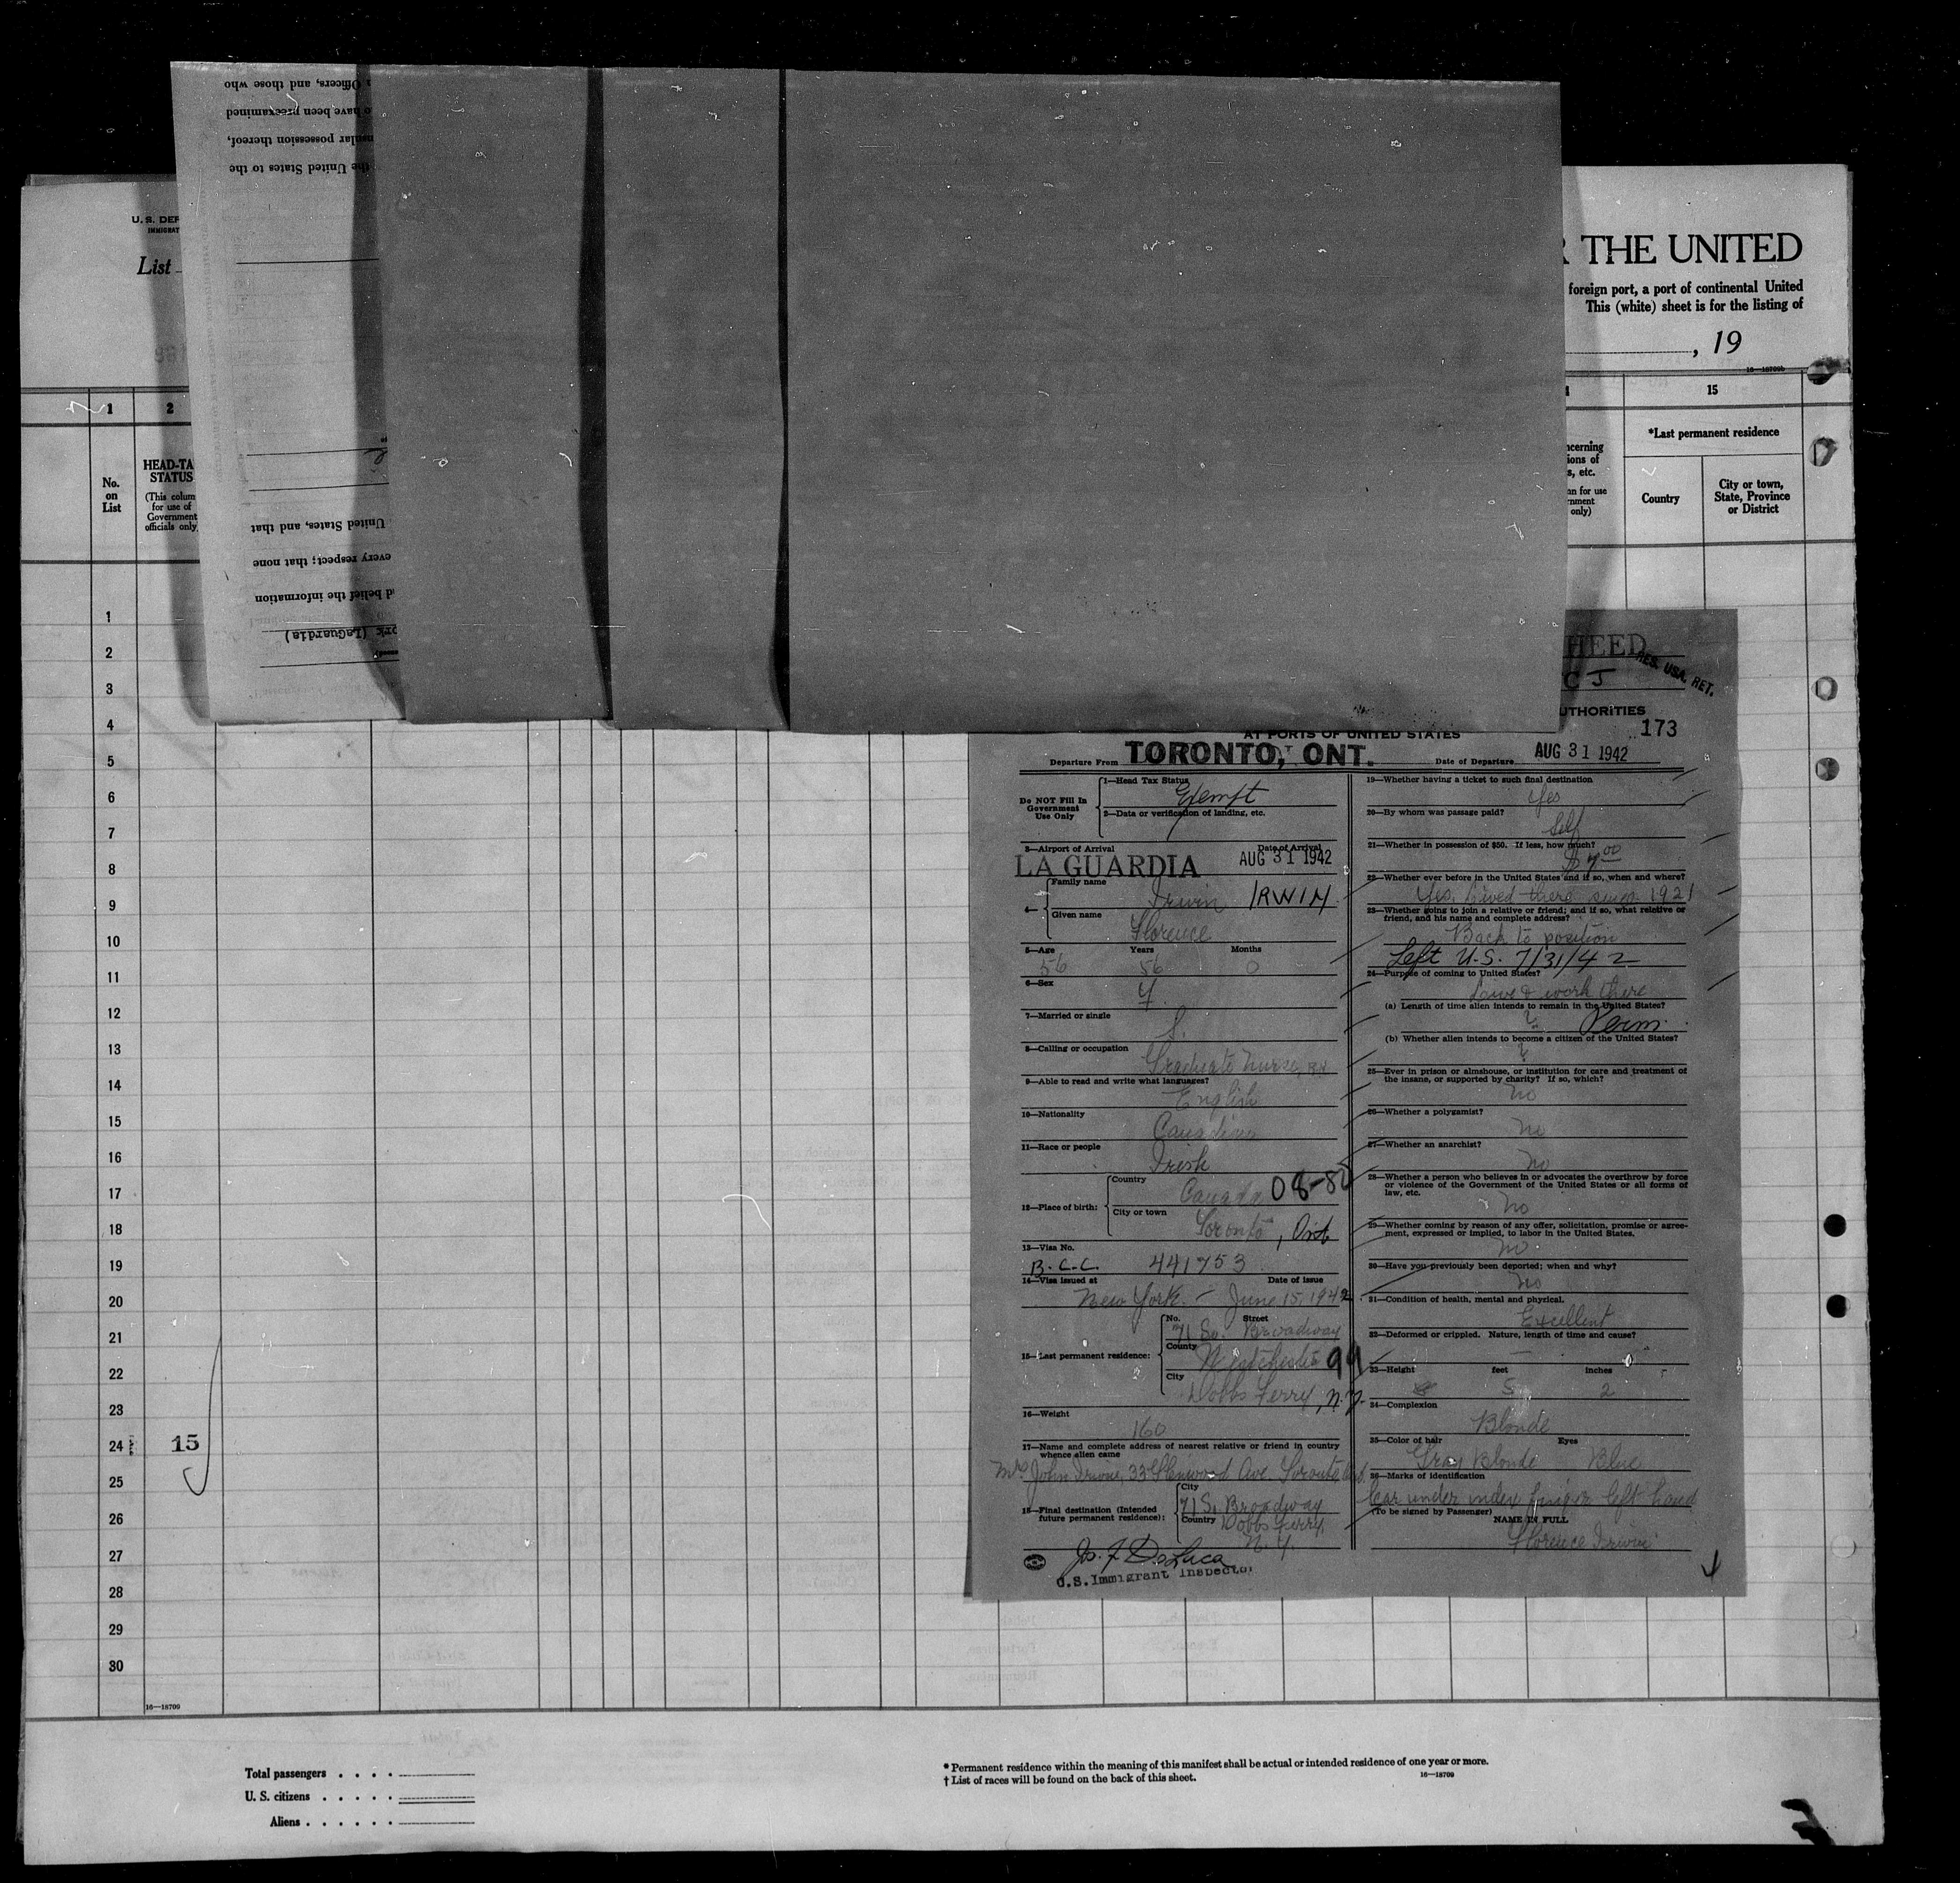 Officers, and those who
have been preexamined
insular possession thereof,
the United States to the
United States, and that
every respect; that none
belief the information
(LaGuardia)
U. S. DEP
IMMIGRAT
List
THE UNITED
foreign port, a port of continental United
This (white) sheet is for the listing of
, 19
16—18709b
1 2 15
No. on List
HEAD-TA
STATUS
(This colum
for use of
Government
officials only
ncerning
ions of
s, etc.
an for use
rnment
only)
*Last permanent residence
Country
City or town,
State, Province
or District
1
2
3
4
5
6
7
8
9
10
11
12
13
14
15
16
17
18
19
20
21
22
23
24 15
25
26
27
28
29
30
16—18709
HEED
RES. USA. RET.
C J
UTHORITIES
173
AT PORTS OF UNITED STATES
Departure From TORONTO, ONT. Date of Departure AUG 31 1942
Do NOT Fill In
Government
Use Only
1—Head Tax Status
Exempt
2—Data or verification of landing, etc.
3—Airport of Arrival Date of Arrival
LA GUARDIA AUG 31 1942
4—
Family name
Irwin IRWIN
Given name
Florence
5—Age Years Months
56 56 0
6—Sex
f
7—Married or single
S.
8—Calling or occupation
Graduate Nurse, RN
9—Able to read and write what languages?
English
10—Nationality
Canadian
11—Race or people
Irish
12—Place of birth:
Country
Canada 08-80
City or town
Toronto, Ont
13—Visa No.
B.C.C. 441753
14—Visa issued at Date of issue
New York. – June 15, 1942
15—Last permanent residence:
No. Street
71 So. Broadway
County
Westchester 99
City
Dobbs Ferry, N.Y.
16—Weight
160
17—Name and complete address of nearest relative or friend in country
whence alien came
Mrs John Irwin, 33 Glenwood Ave. Toronto Ont.
18—Final destination (Intended
future permanent residence):
City
71 S. Broadway
Country Dobbs Ferry,
N.Y.
Jos. F. DeLuca
U.S. Immigrant Inspector
19—Whether having a ticket to such final destination
Yes
20—By whom was passage paid?
Self
21—Whether in possession of $50. If less, how much?
$7.00
22—Whether ever before in the United States and if so, when and where?
Yes. Lived there since 1921
23—Whether going to join a relative or friend; and if so, what relative or
friend, and his name and complete address?
Back to position
Left U.S. 7/31/42
24—Purpose of coming to United States?
Live & work there
(a) Length of time alien intends to remain in the United States?
? Perm.
(b) Whether alien intends to become a citizen of the United States?
?
25—Ever in prison or almshouse, or institution for care and treatment of
the insane, or supported by charity? If so, which?
no
26—Whether a polygamist?
no
27—Whether an anarchist?
no
28—Whether a person who believes in or advocates the overthrow by force
or violence of the Government of the United States or all forms of
law, etc.
no
29—Whether coming by reason of any offer, solicitation, promise or agree-
ment, expressed or implied, to labor in the United States.
no
30—Have you previously been deported; when and why?
no
31—Condition of health, mental and physical.
Excellent
32—Deformed or crippled. Nature, length of time and cause?
—
33—Height feet inches
5 2
34—Complexion
Blonde
35—Color of hair Eyes
Gray Blonde Blue
36—Marks of identification
Scar under index finger left hand
(To be signed by Passenger)
NAME IN FULL
Florence Irwin
Total passengers
U. S. citizens
Aliens
* Permanent residence within the meaning of this manifest shall be actual or intended residence of one year or more.
† List of races will be found on the back of this sheet.
16—18709